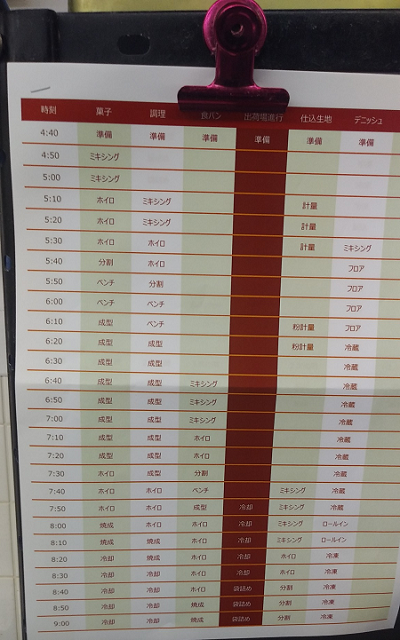 時刻 菓子 調理 食パン 出荷場進行 仕込生地 デニッシュ
4:40 準備 準備 準備 準備 準備 準備
4:50 ミキシング
5:00 ミキシング
5:10 ホイロ ミキシング 計量
5:20 ホイロ ミキシング 計量
5:30 ホイロ ホイロ 計量 ミキシング
5:40 分割 ホイロ フロア
5:50 ベンチ 分割 フロア
6:00 ベンチ ベンチ フロア
6:10 成型 ベンチ 粉計量 フロア
6:20 成型 成型 粉計量 冷蔵
6:30 成型 成型 冷蔵
6:40 成型 成型 ミキシング 冷蔵
6:50 成型 成型 ミキシング 冷蔵
7:00 成型 成型 ミキシング 冷蔵
7:10 成型 成型 ホイロ 冷蔵
7:20 成型 成型 ホイロ 冷蔵
7:30 ホイロ 成型 分割 冷蔵
7:40 ホイロ ホイロ ベンチ ミキシング 冷蔵
7:50 ホイロ ホイロ 成型 冷却 ミキシング 冷蔵
8:00 焼成 ホイロ ホイロ 冷却 ミキシング ロールイン
8:10 焼成 焼成 ホイロ 冷却 ミキシング ロールイン
8:20 冷却 焼成 ホイロ 冷却 ホイロ 冷凍
8:30 冷却 冷却 ホイロ 冷却 ホイロ 冷凍
8:40 冷却 冷却 ホイロ 袋詰め 分割 冷凍
8:50 冷却 冷却 焼成 袋詰め 分割 冷凍
9:00 冷却 冷却 焼成 袋詰め 分割 冷凍